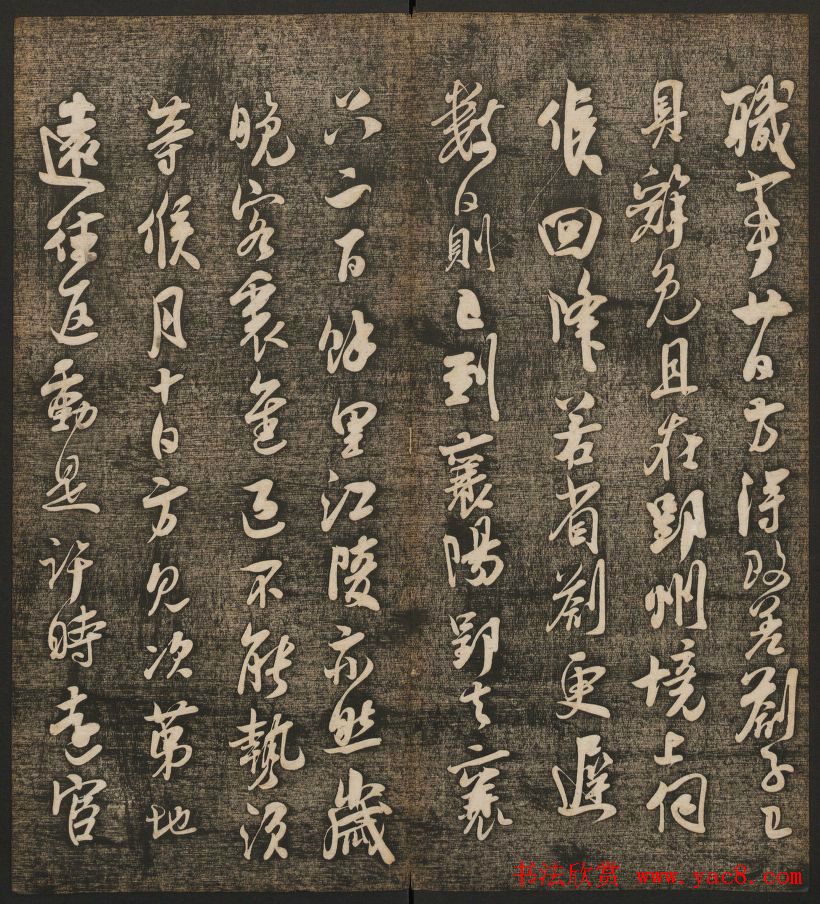 職事廿一日方得改差劄子已
具辭免且在郢州境上伺
候回降若省劄更遲
數日則已到襄陽郢去襄
只二百餘里江陵亦然歲
晚客裏兼程不能執須
等候月十日方見次第地
遠往返動是許時逺宦
书法欣赏 www.yac8.com